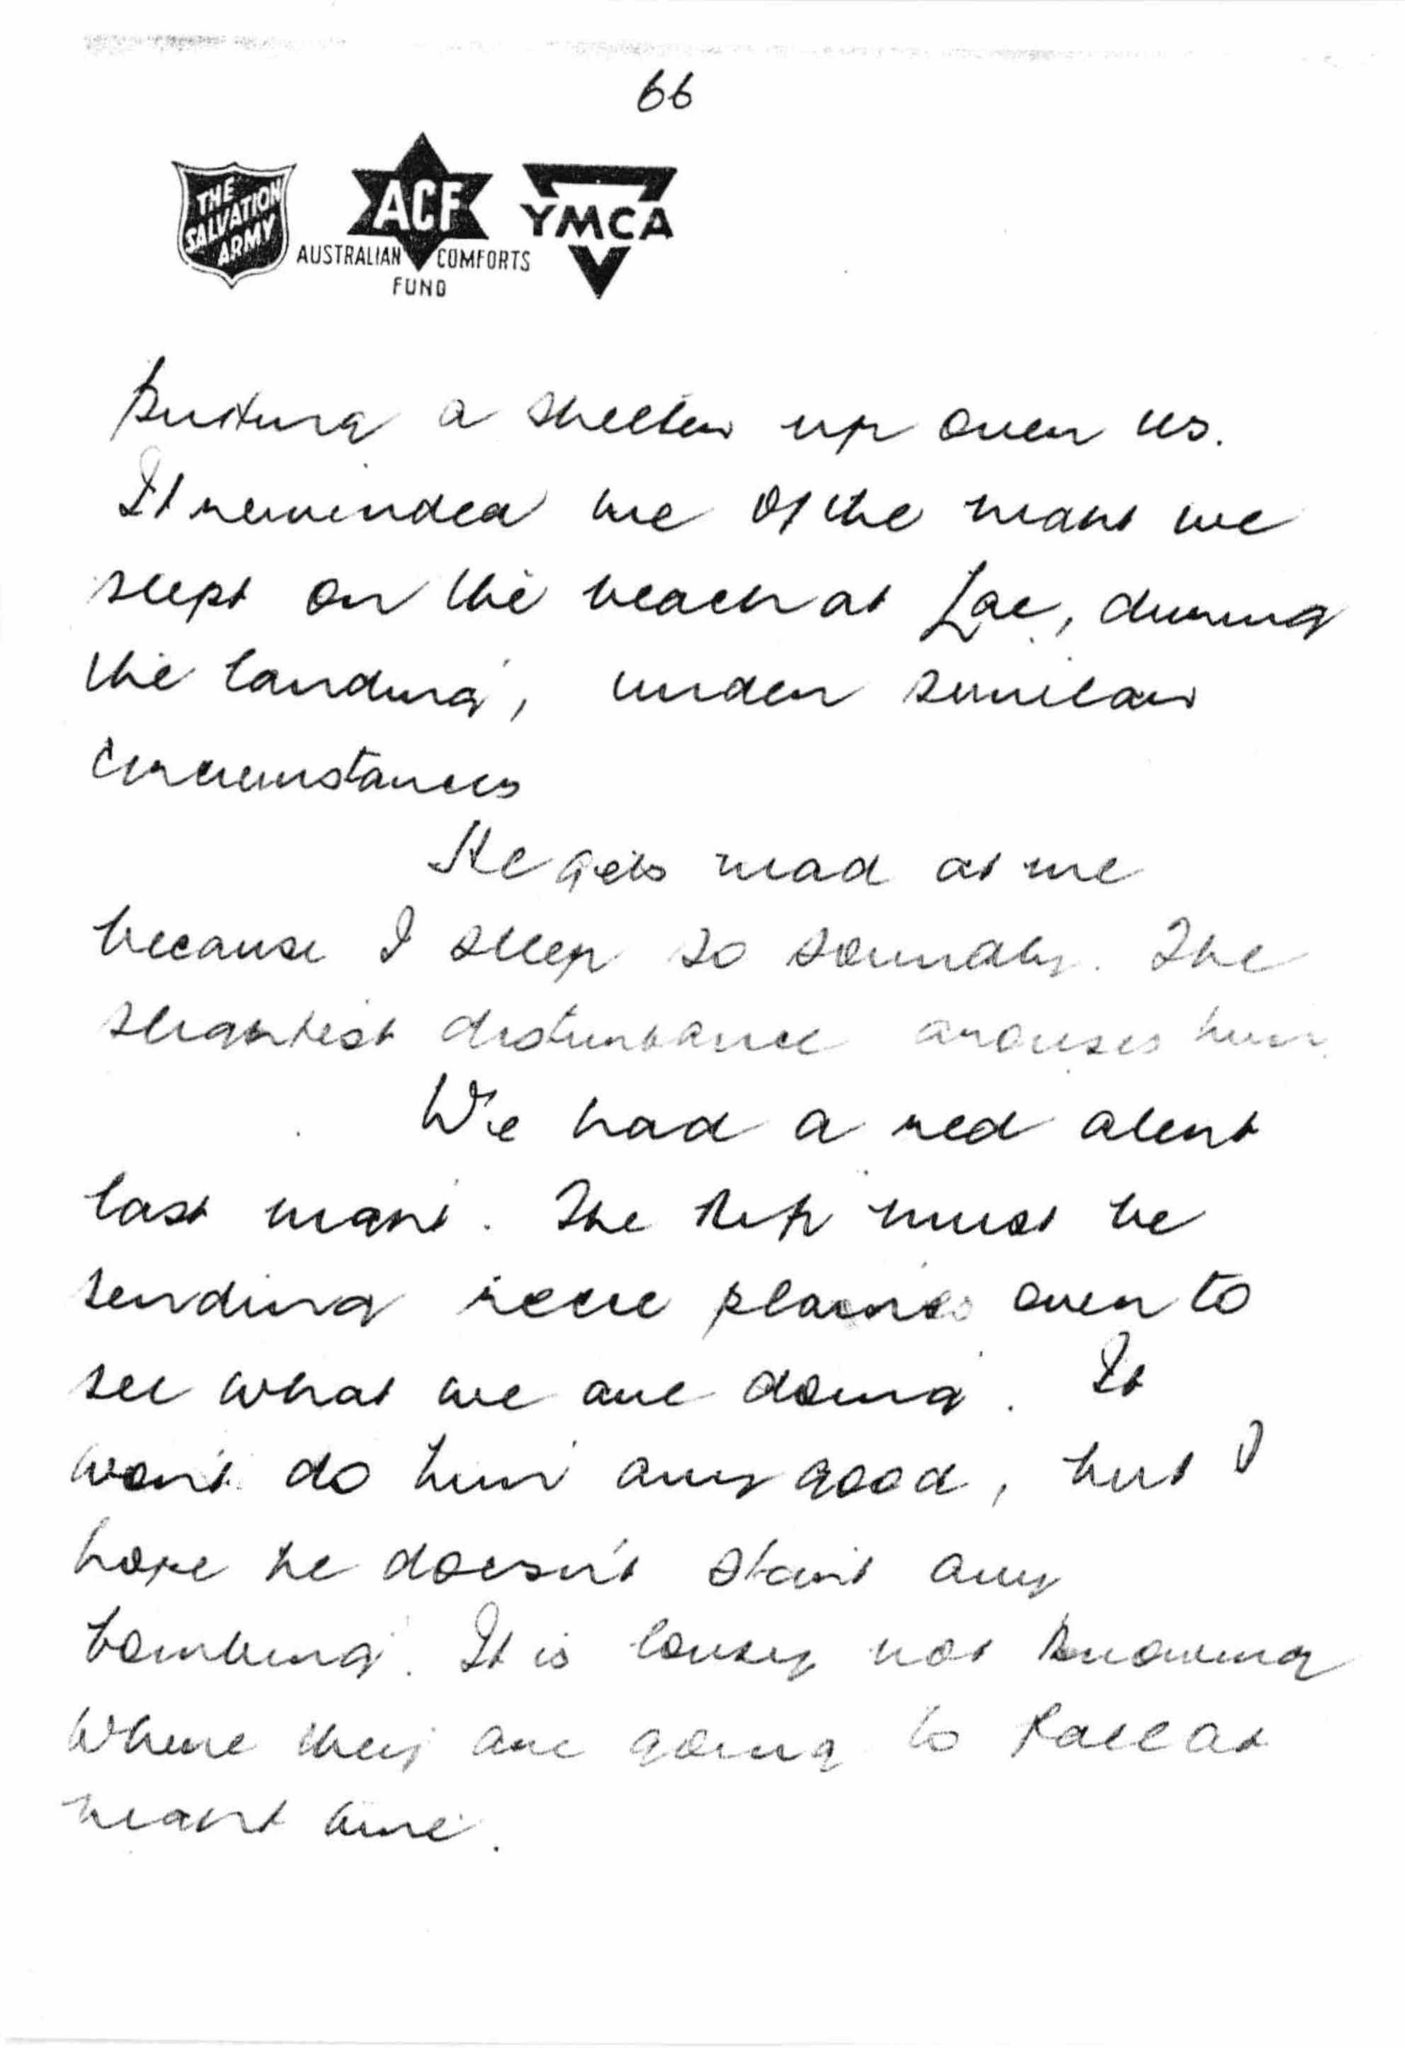 66
THE
SALVATION
ARMY
ACF
AUSTRALIAN COMFORTS
FUND
YMCA
putting a shelter up over us.
It reminded me of the night we
slept on the beach at Lae, during
the landing, under similar
circumstances
He gets mad at me
because I sleep so soundly. The
slightest disturbance arouses him
We had a red alert
last night. The Nip must be
sending recce planes over to
see what we are doing. It
won't do him any good, but I
hope he doesn't start any
bombing. It is lousy not knowing
where they are going to fall at
night time.